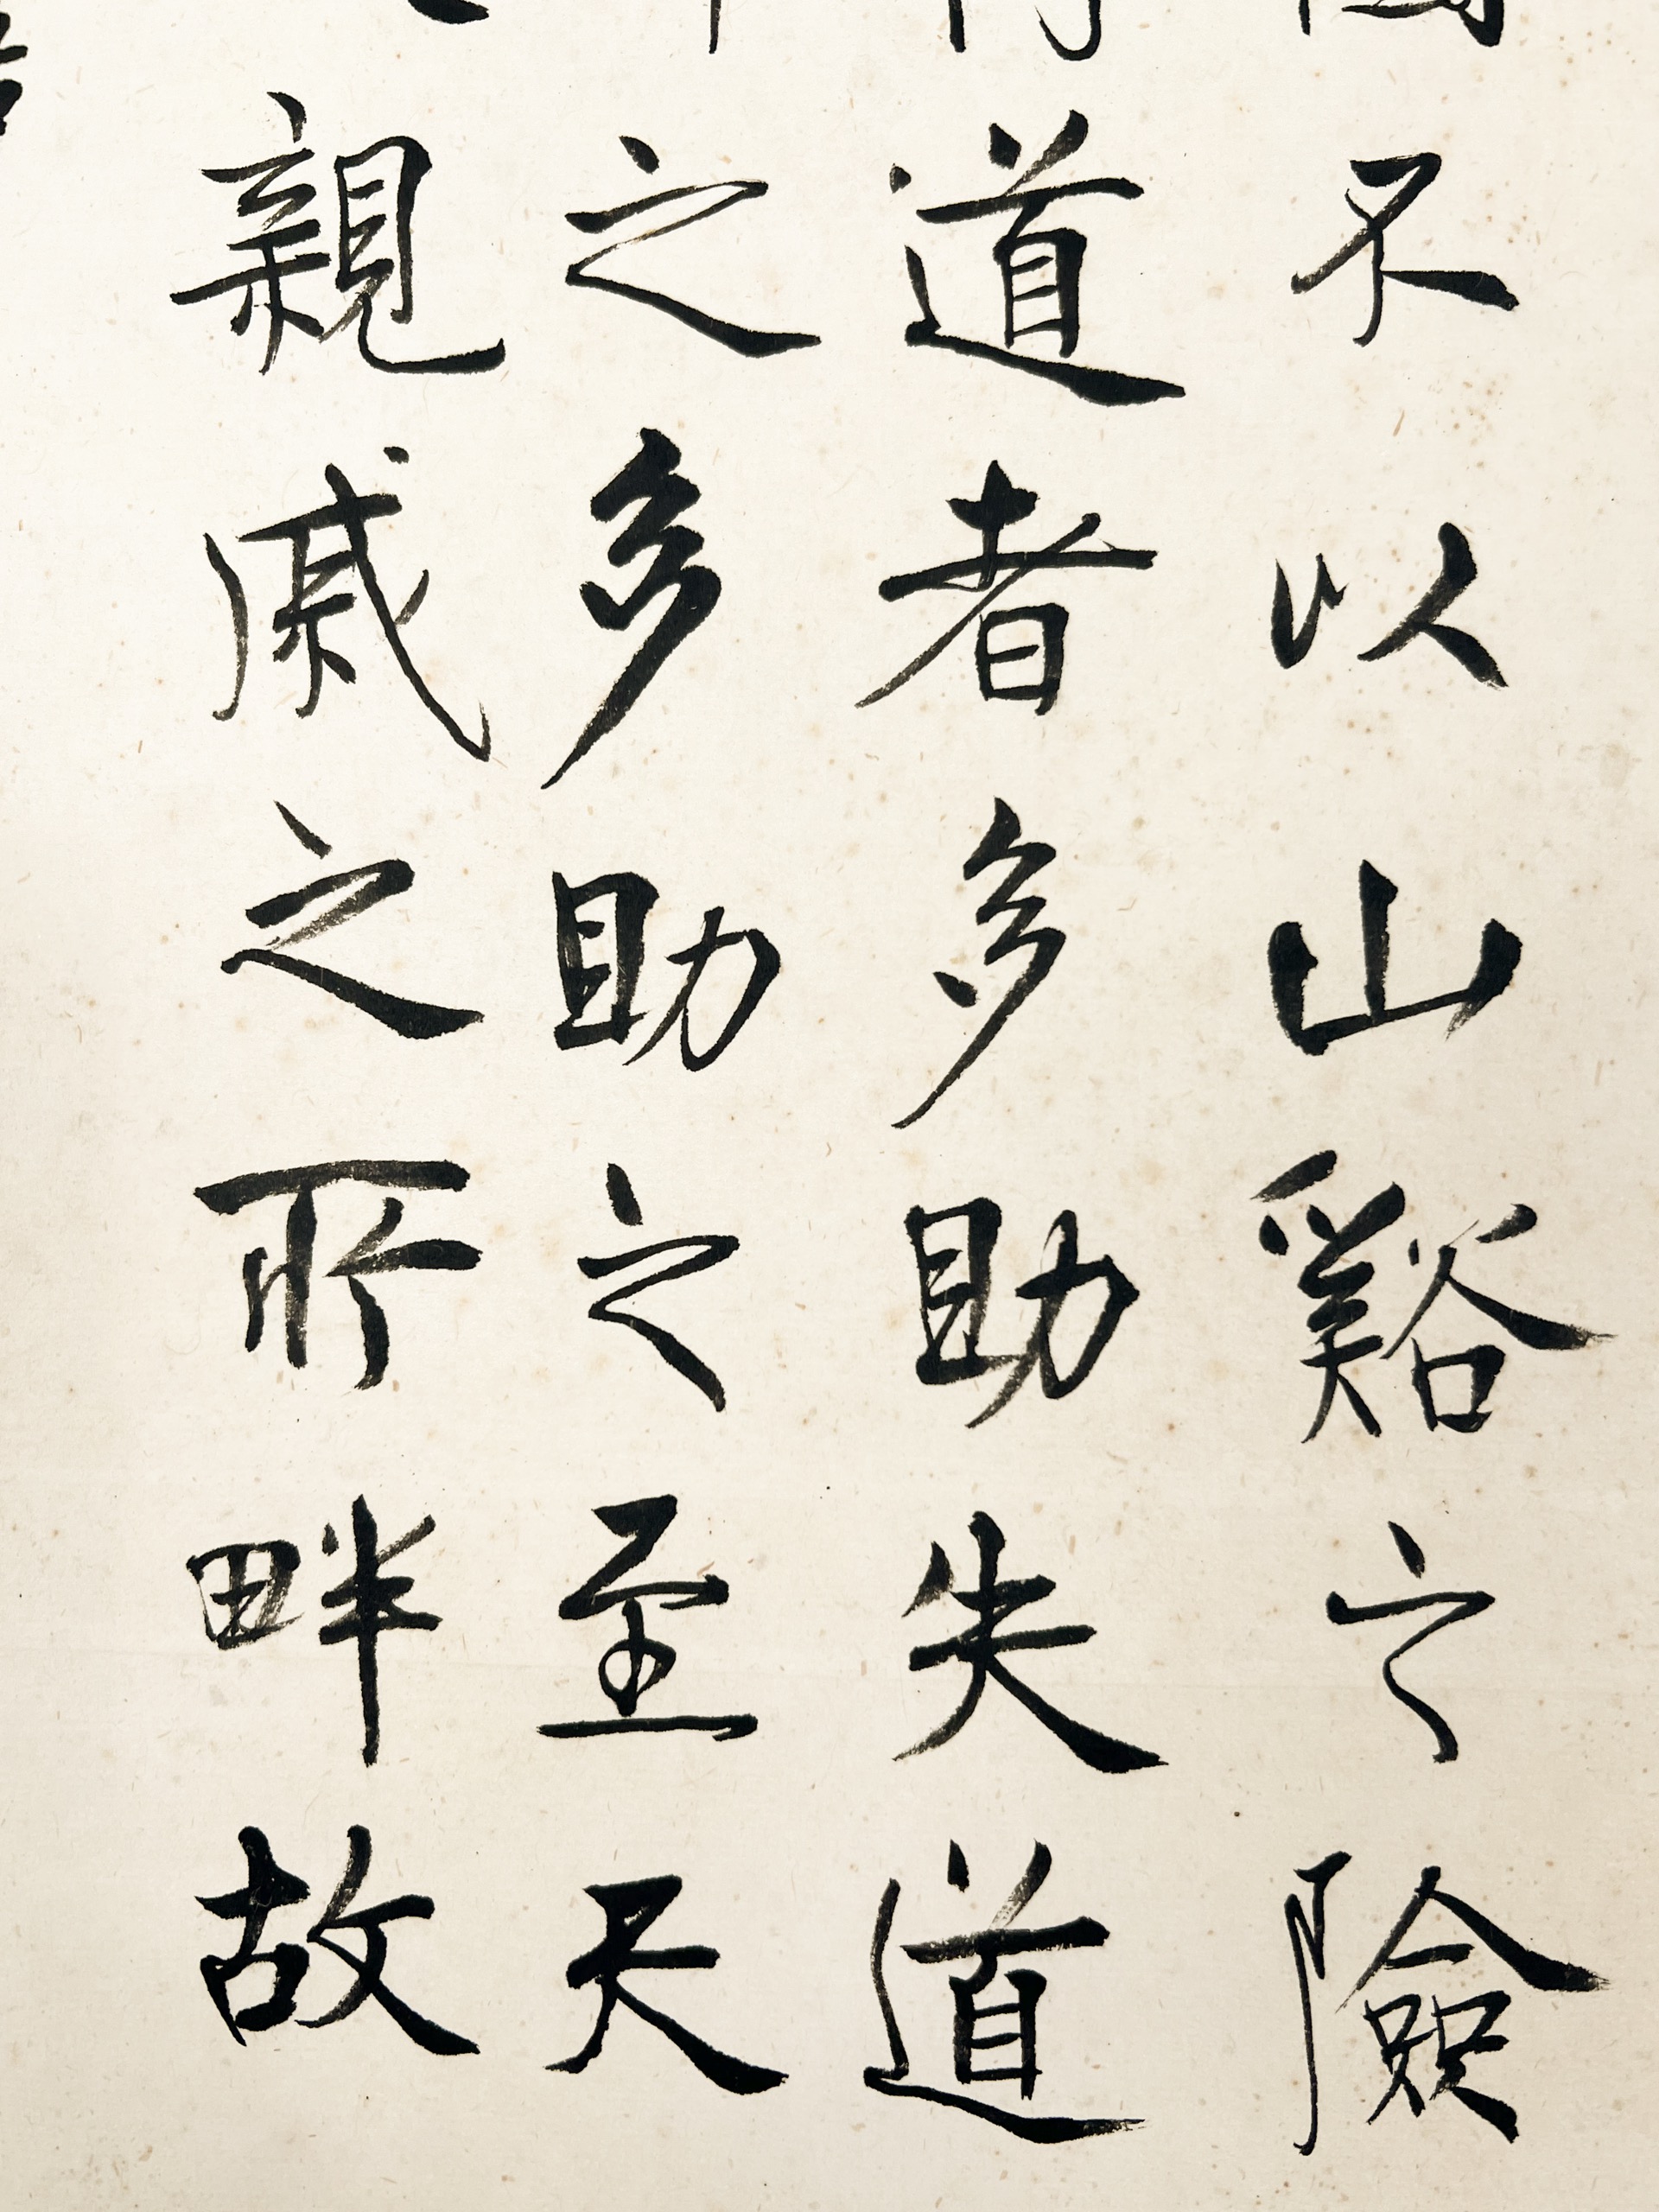 不以山谿之險
道者多助失道
之多助之至天
親戚之所畔故